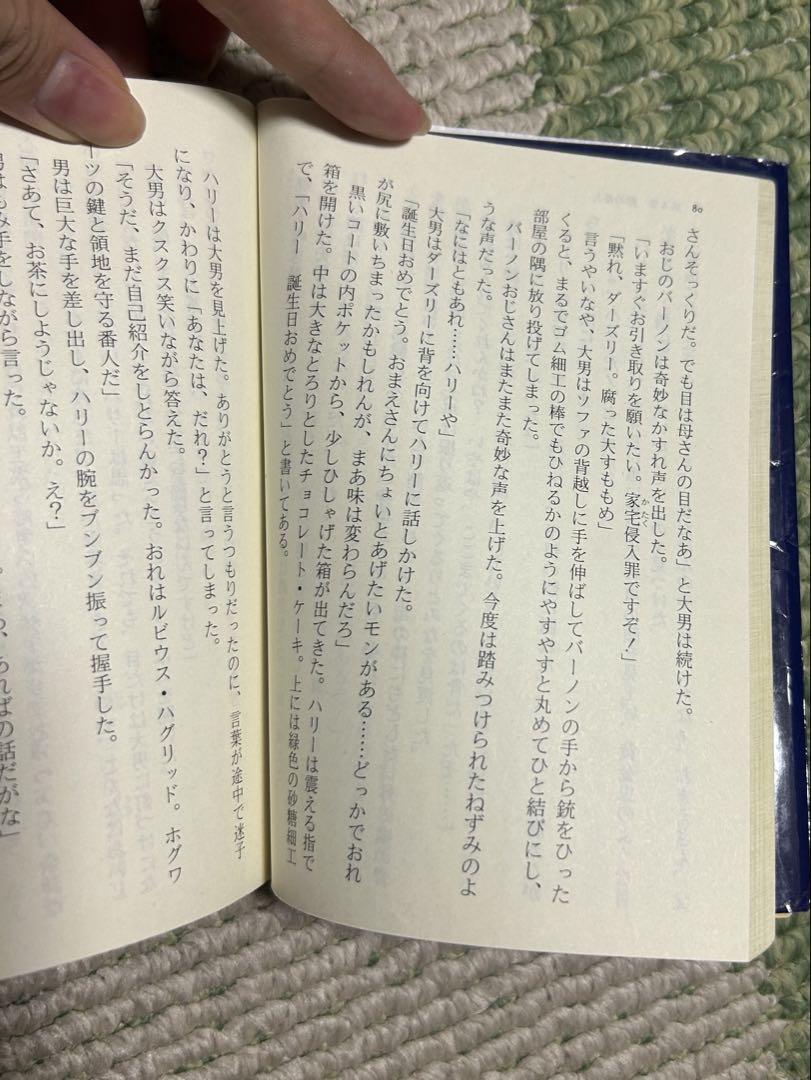 80
さんそっくりだ。でも目は母さんの目だなあ」と大男は続けた。
おじのバーノンは奇妙なかすれ声を出した。
「いますぐお引き取りを願いたい。家宅侵入罪ですぞ！」
かたく
「黙れ、ダーズリー。腐った大すももめ」
言うやいなや、大男はソファの背越しに手を伸ばしてバーノンの手から銃をひった
くると、まるでゴム細工の棒でもひねるかのようにやすやすと丸めてひと結びにし、
部屋の隅に放り投げてしまった。
バーノンおじさんはまたまた奇妙な声を上げた。今度は踏みつけられたねずみのよ
うな声だった。
「なにはともあれ……ハリーや」
大男はダーズリーに背を向けてハリーに話しかけた。
「誕生日おめでとう。おまえさんにちょいとあげたいモンがある……どっかでおれ
が尻に敷いちまったかもしれんが、まあ味は変わらんだろ」
黒いコートの内ポケットから、少しひしゃげた箱が出てきた。ハリーは震える指で
箱を開けた。中は大きなとろりとしたチョコレート・ケーキ。上には緑色の砂糖細工
で、「ハリー　誕生日おめでとう」と書いてある。
ハリーは大男を見上げた。ありがとうと言うつもりだったのに、言葉が途中で迷子
になり、かわりに「あなたは、だれ？」と言ってしまった。
大男はクスクス笑いながら答えた。
「そうだ、まだ自己紹介をしとらんかった。おれはルビウス・ハグリッド。ホグワ
ーツの鍵と領地を守る番人だ」
男は巨大な手を差し出し、ハリーの腕をブンブン振って握手した。
「さあて、お茶にしようじゃないか。え？」
男はもみ手をしながら言った。
ればの話だがな」